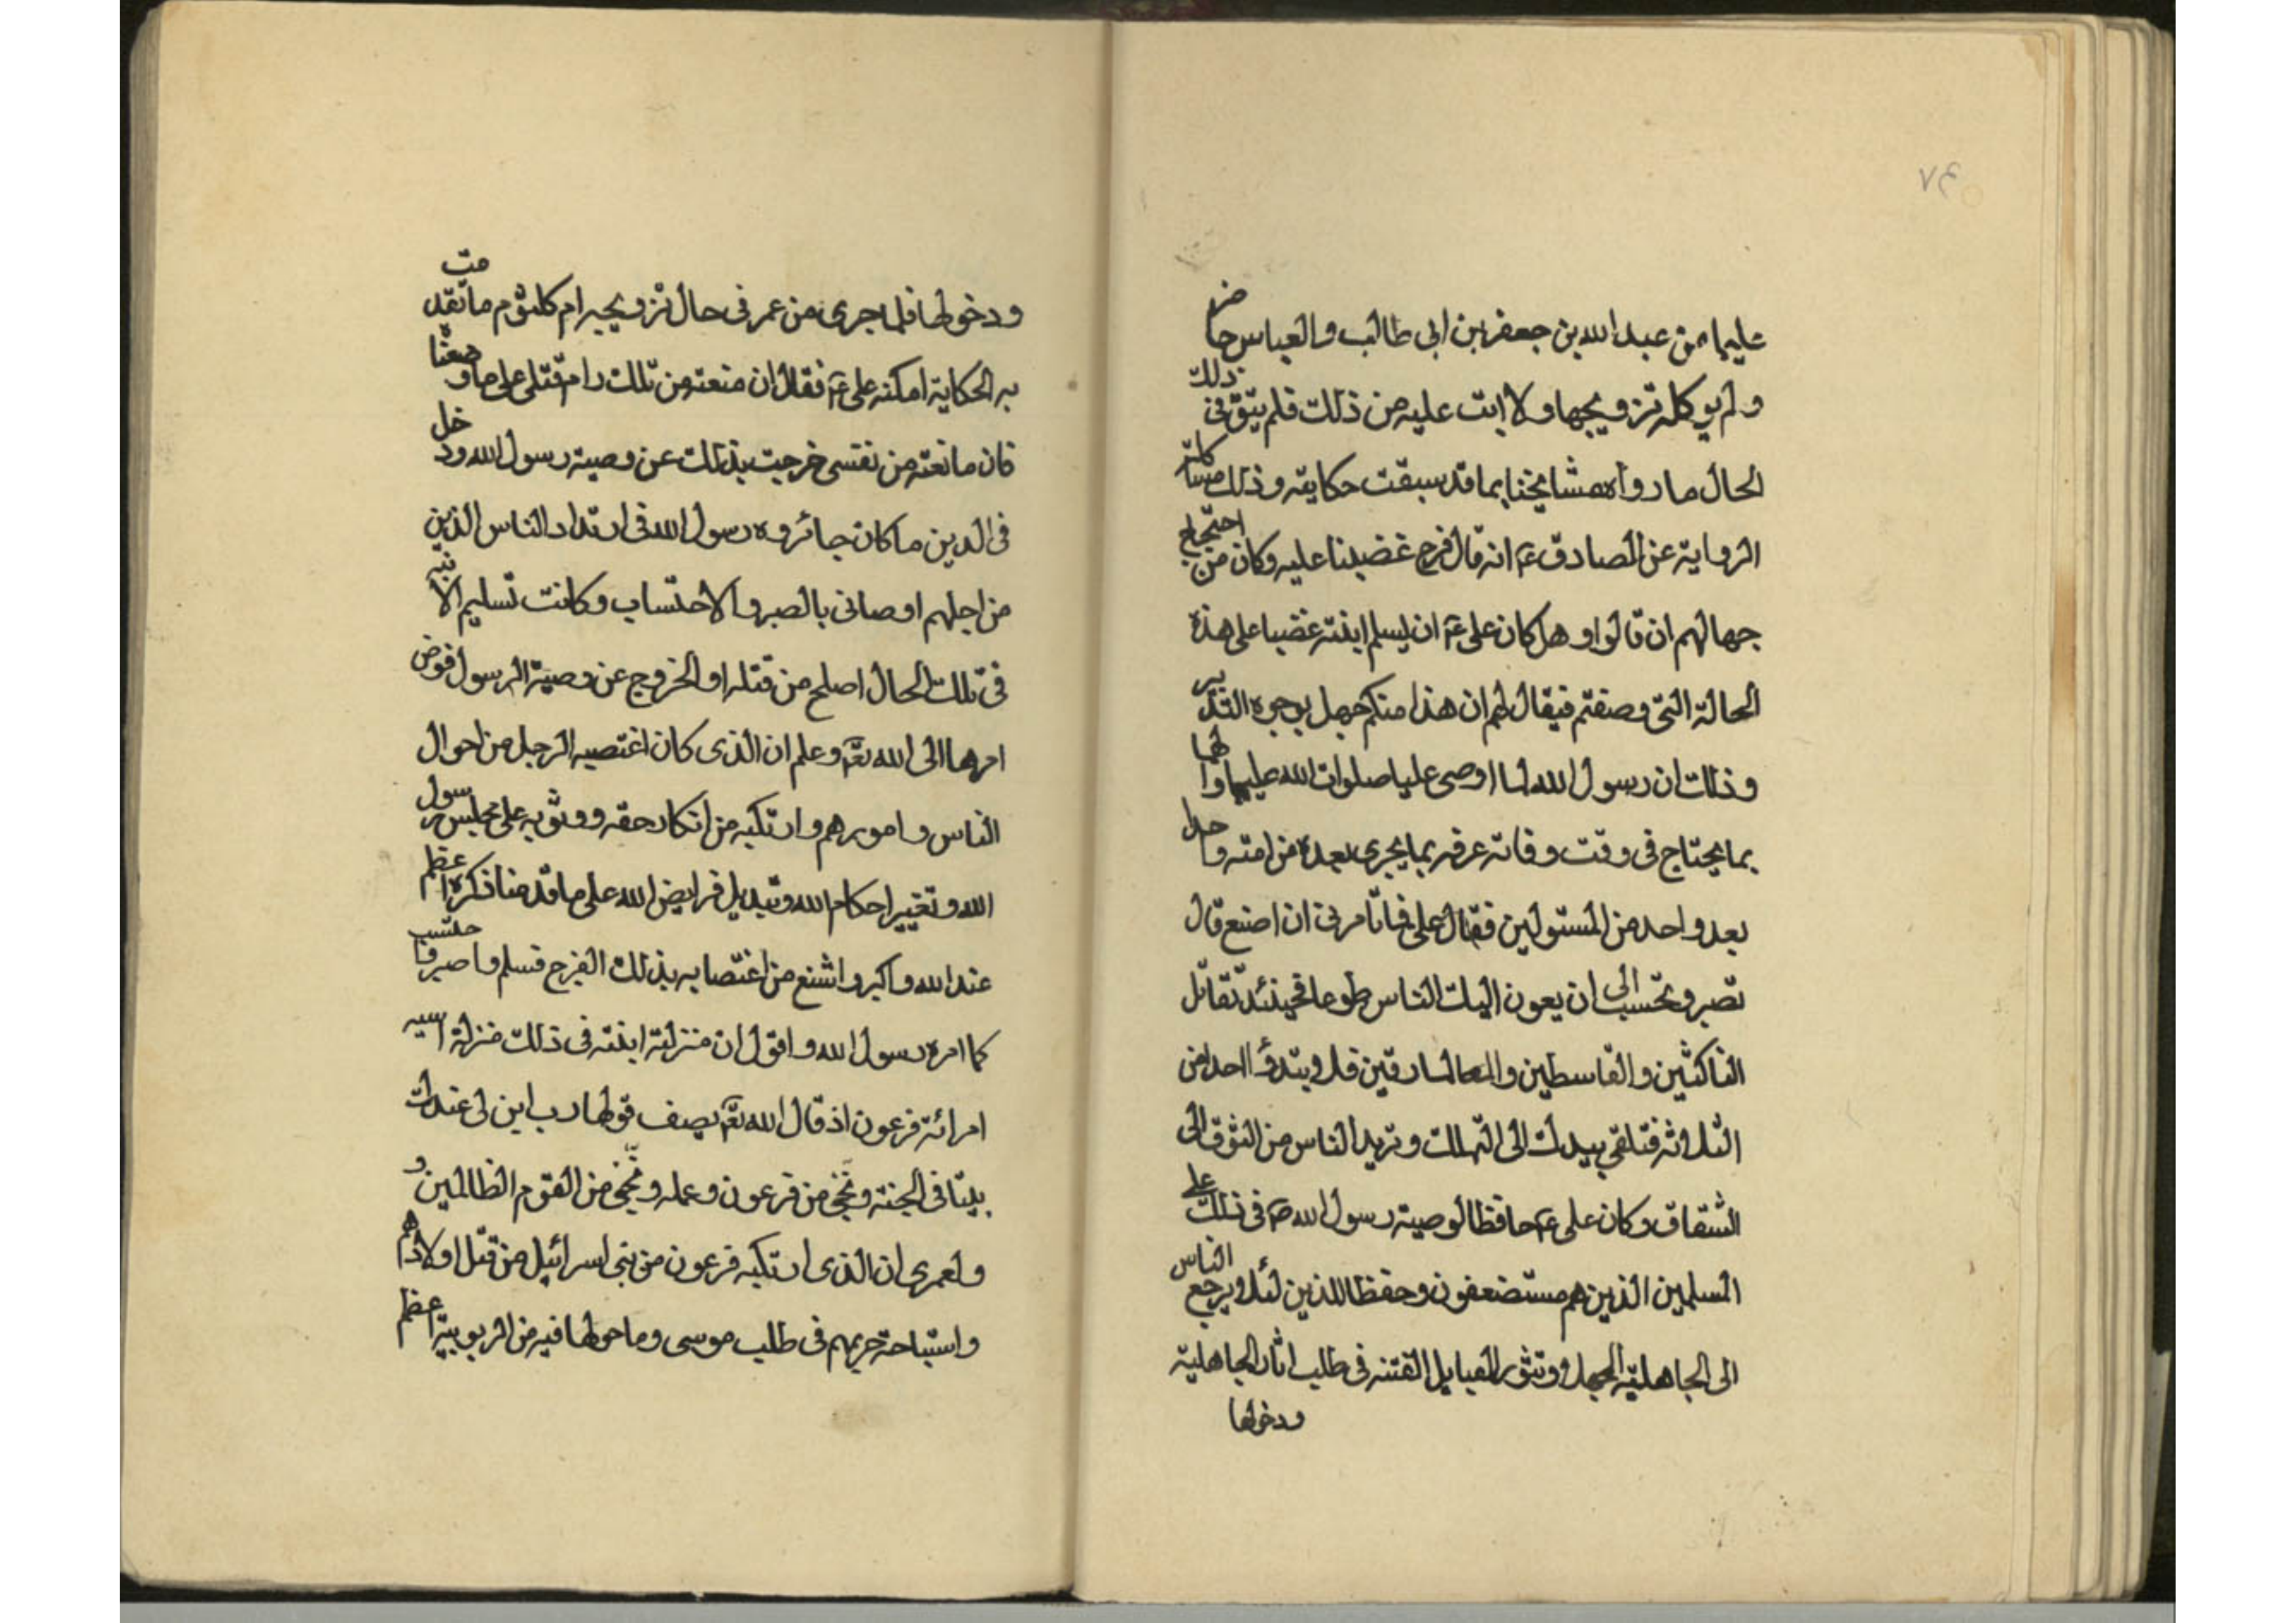 ٧٤
عليها من عبد الله بن جعفر بن ابى طالب والعباس حاضر
ولم يوكله تزويجها ولا ابت عليه من ذلك فلم يتق فى ذلك
الحال ما رواه مشايخنا بما قد سبقت حكايته وذلك مشاكلة
الرواية عن الصادق ع انه قال فرج غصبنا عليه وكان من احتجاج
جهالهم ان قالوا وهل كان على ع ان يسلم ابنته غصبا على هذه
الحالة التى وصفتم فيقال لهم ان هذا منكم جهل بوجوه التدبير
وذلك ان رسول الله لما اوصى عليا صلوات الله عليهما والهما
بما يحتاج فى وقت وفاته عرفه بما يجرى بعده من امته واحدا
بعد واحد من المستولين فقال على فما تامرنى ان اصنع قال
تصبر وتحتسب الى ان يعون اليك الناس طوعا فحينئذ تقاتل
الناكثين والقاسطين والمارقين فلا وبتدؤ احد من
الثلاثة فتلقى بيدك الى التهلك وتريد الناس من النفوق الى
الشقاق وكان على ع حافظا لوصية رسول الله ص فى ذلك على
المسلمين الذين هم مستضعفون وحفظا للذين لئلا ويرجع الناس
الى الجاهلية الجهلا وتثور القبايل الفتنه فى طلب اثار الجاهلية
ودخولها
ودخولها فلما جرى من عمر فى حال تزويجه ام كلثوم ما تقدمت
به الحكاية امكنه على ع فقال ان منعته من تلك رام قتلى على ما وصفنا
فان مانعته من نفسى خرجت بذلك عن وصية رسول الله ودخل
فى الدين ما كان جائزوه رسول الله فى ارتداد الناس الذين
من اجلهم اوصانى بالصبر والاحتساب وكانت تسليم الابنه
فى تلك الحال اصلح من قتله او الخروج عن وصية الرسول فوض
امرها الى الله تع وعلم ان الذى كان اغتصبه الرجل من احوال
الناس وامورهم وارتكبه من انكار حقه ووثوبه على مجلس رسول
الله وتغيير احكام الله وتبديل فرايض الله على ما قدمنا ذكره اعظم
عند الله واكبر واشنع من اغتصابه بذلك الفرج فسلم واصبر واحتسب
كما امره رسول الله واقول ان منزلته ابنته فى ذلك منزلة اسيه
امرائة فرعون اذ قال الله تع يصف قولها رب ابن لى عندك
بيتا فى الجنة ونجنى من فرعون وعمله ونجنى من القوم الظالمين و
ولعمرى ان الذى ارتكبه فرعون من بنى اسرائيل من قتل اولادهم
واستباحة حريمهم فى طلب موسى وما حولها فيه من الربوبية اعظم